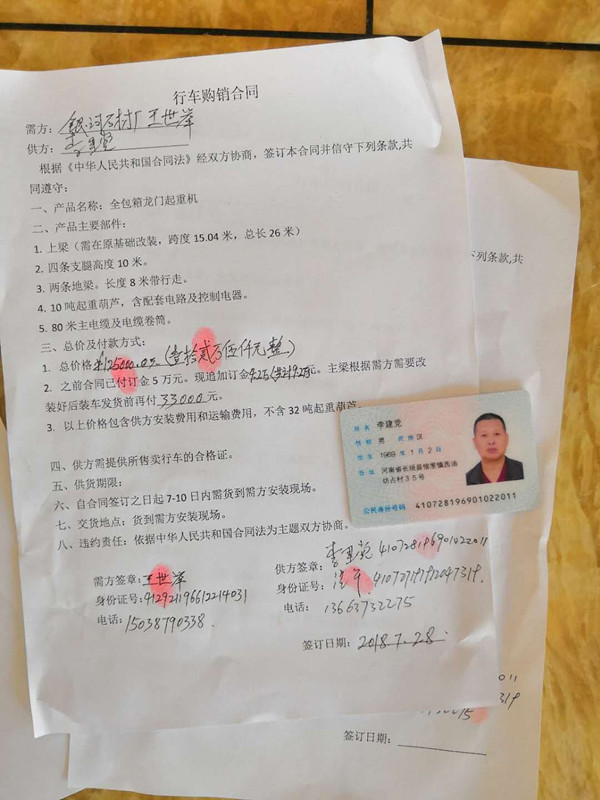 行车购销合同
需方：银河石材厂王世举
供方：
根据《中华人民共和国合同法》经双方协商，签订本合同并信守下列条款,共
同遵守：
一、产品名称：全包箱龙门起重机
二、产品主要部件：
1. 上梁（需在原基础改装，跨度 15.04 米，总长 26 米）
2. 四条支腿高度 10 米。
3. 两条地梁。长度 8 米带行走。
4. 10 吨起重葫芦，含配套电路及控制电器。
5. 80 米主电缆及电缆卷筒。
三、总价及付款方式：
1. 总价格¥125000.0元（壹拾贰万伍仟元整）
2. 之前合同已付订金 5 万元。现追加订金 元。主梁根据需方需要改
装好后装车发货前再付33000元。
3. 以上价格包含供方安装费用和运输费用，不含 32 吨起重葫芦。
四、供方需提供所售卖行车的合格证。
五、供货期限：
六、自合同签订之日起 7-10 日内需货到需方安装现场。
七、交货地点：货到需方安装现场。
八、违约责任：依据中华人民共和国合同法为主题双方协商。
需方签章：王世举
身份证号：412921196612214031
电话：15038790338.
供方签章： 410728196901022011
身份证号：
电话：13663732275
签订日期：2018.7.28.
下列条款,共
姓名 李建党
性别 男 民族 汉
出生 1969 年 1 月 2 日
住址 河南省长垣县恼里镇西油
坊占村35号
公民身份号码 410728196901022011
011
319
签订日期：